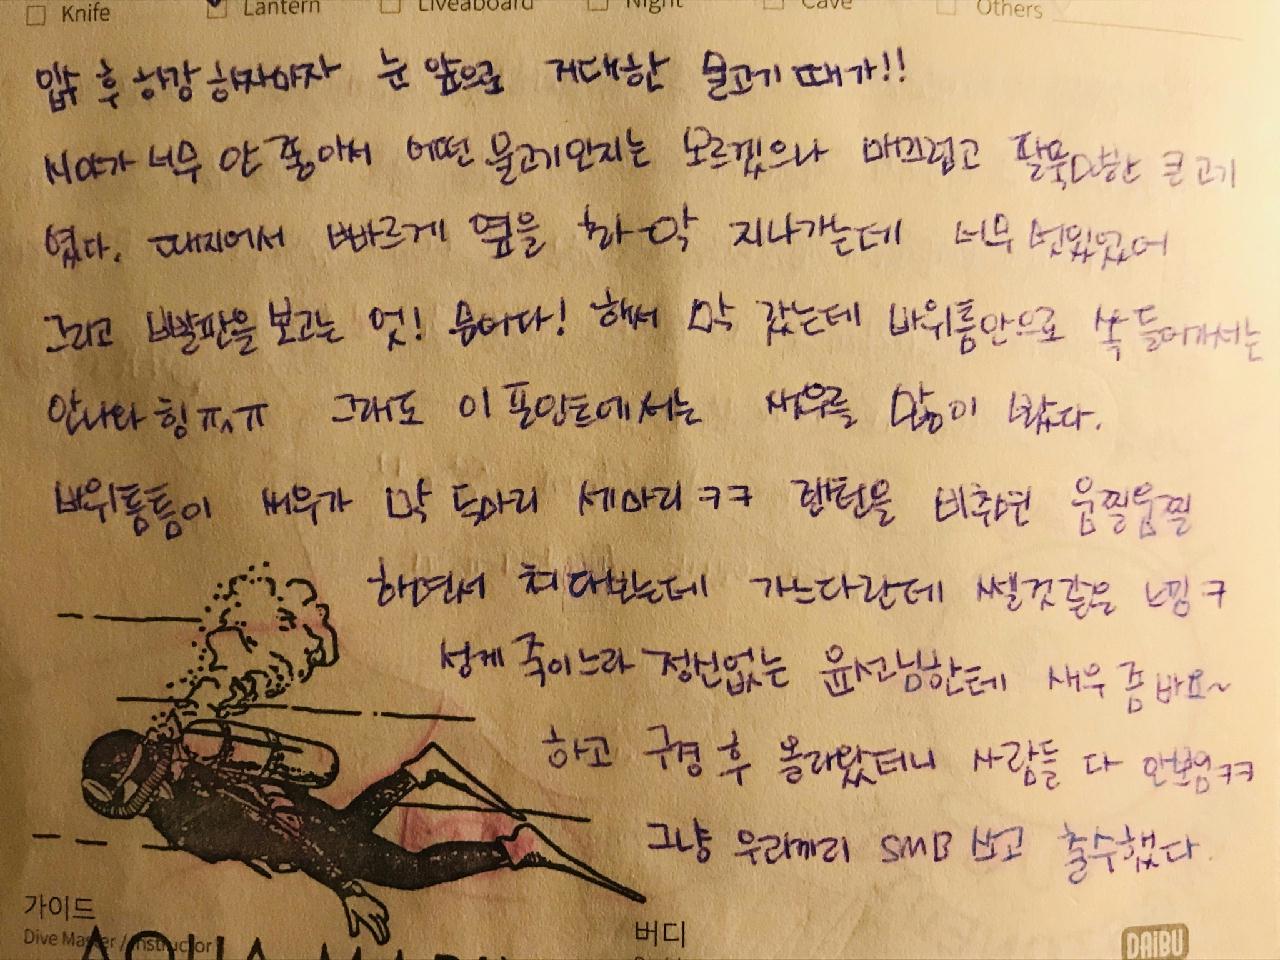 Knife Lantern Liveaboard Night Cave Others
입수 후 하강 하자마자 눈 앞으로 거대한 물고기 떼가!!
시야가 너무 안 좋아서 어떤 물고기인지는 모르겠으나 매끄럽고 팔뚝만한 큰 고기
였다. 떼지어서 빠르게 옆을 화-악 지나가는데 너무 멋있었어
그리고 뻘판을 보고는 엇! 숭어다! 해서 막 갔는데 바위틈안으로 쏙 들어가서는
안나와 힝ㅠㅅㅠ 그래도 이 포인트에서는 새우를 많이 봤다.
바위틈틈이 새우가 막 두마리 세마리ㅋㅋ 랜턴을 비추면 움찔움찔
하면서 쳐다보는데 가느다란데 쎌것같은 느낌ㅋ
성게 죽이느라 정신없는 윤선님한테 새우 좀 봐요~
하고 구경 후 올라왔더니 사람들 다 안보임ㅋㅋ
그냥 우리끼리 SMB 쏘고 출수했다.
가이드
Dive Master / Instructor
버디
DAiBU